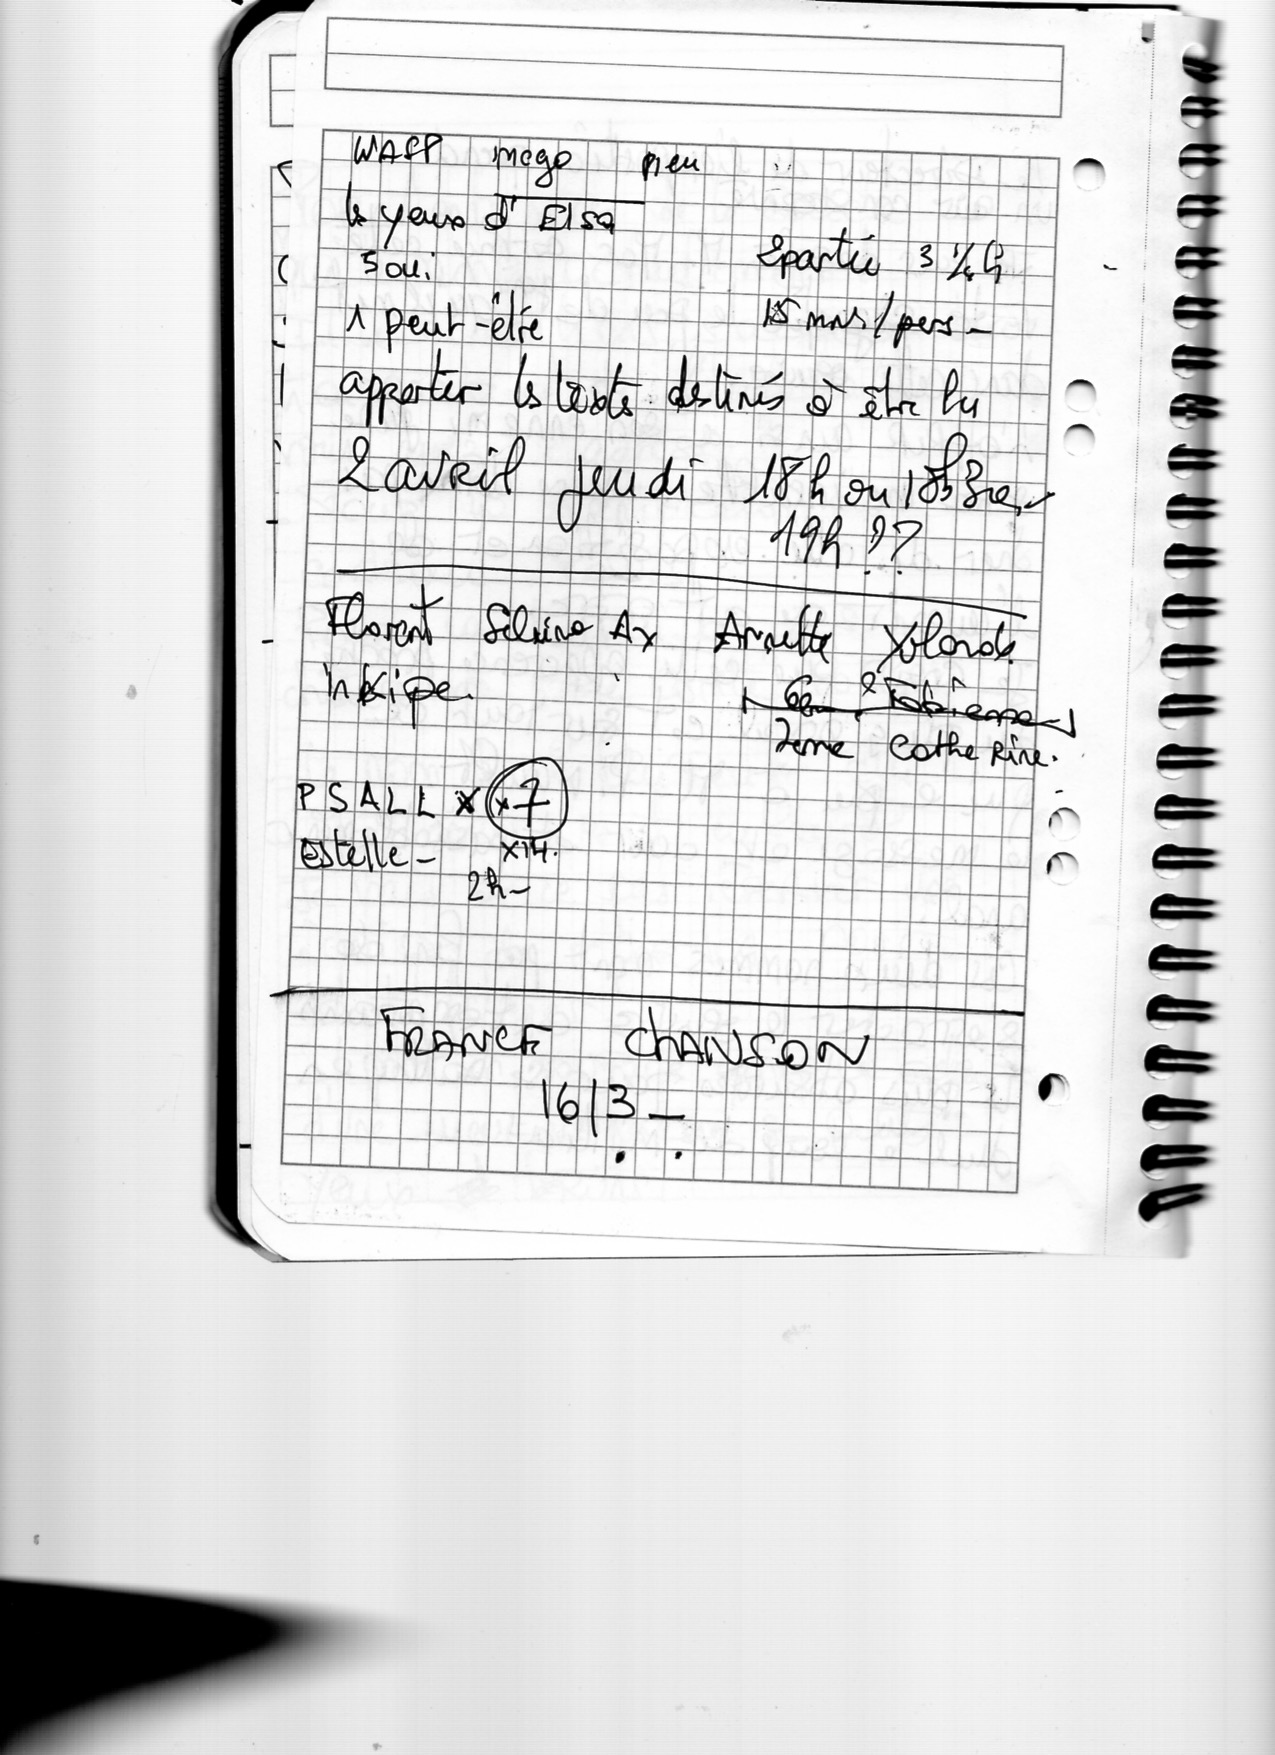 WASP mego
les yeux d'Elsa
5 oui 2 partie 3/4 h
1 peut-être 15 mns/pers -
apporter les textes destinés à être lu
2 avril jeudi 18h ou 18h30
19h ??
Florent Ax Annette Yolande
6em Fabienne
7eme Catherine.
PSALL x x7
Estelle - x14.
2h -
FRANCE CHANSON
16/3 -